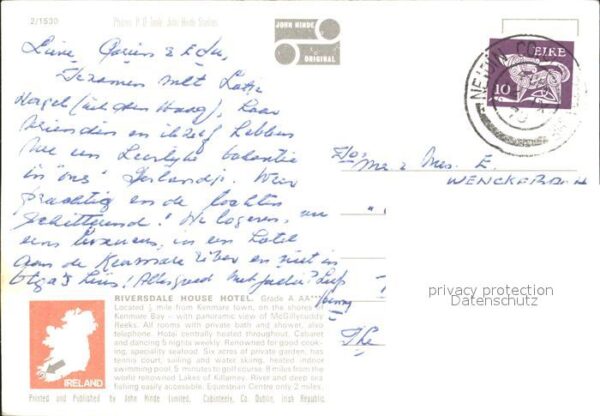 2/1530
Photo: P. O'Toole, John Hinde Studios
JOHN HINDE
ORIGINAL
EIRE
10
CO
Lieve
Tezamen met
Nagel (uit den Haag),
vrienden en ikzelf hebben
we een heerlijke vakantie
in "ons" Ierlandje. Weer
prachtig en de tochten
schitterend! We logeren, nu
eens in een hotel
aan de Kenmare rivier en niet in
Olga's huis! Alles goed met jullie? Liefs
Mr & Mrs. E.
WENCKEBACH
The
privacy protection
Datenschutz
RIVERSDALE HOUSE HOTEL. Grade A AA***
Located ½ mile from Kenmare town, on the shores
Kenmare Bay – with panoramic view of McGillycuddy
Reeks. All rooms with private bath and shower, also
telephone. Hotel centrally heated throughout. Cabaret
and dancing 5 nights weekly. Renowned for good cook-
ing, speciality seafood. Six acres of private garden, has
tennis court, sailing and water skiing, heated indoor
swimming pool. 5 minutes to golf course. 8 miles from the
world renowned Lakes of Killarney. River and deep sea
fishing easily accessible. Equestrian Centre only 2 miles.
IRELAND
Printed and Published by John Hinde Limited, Cabinteely, Co. Dublin, Irish Republic.